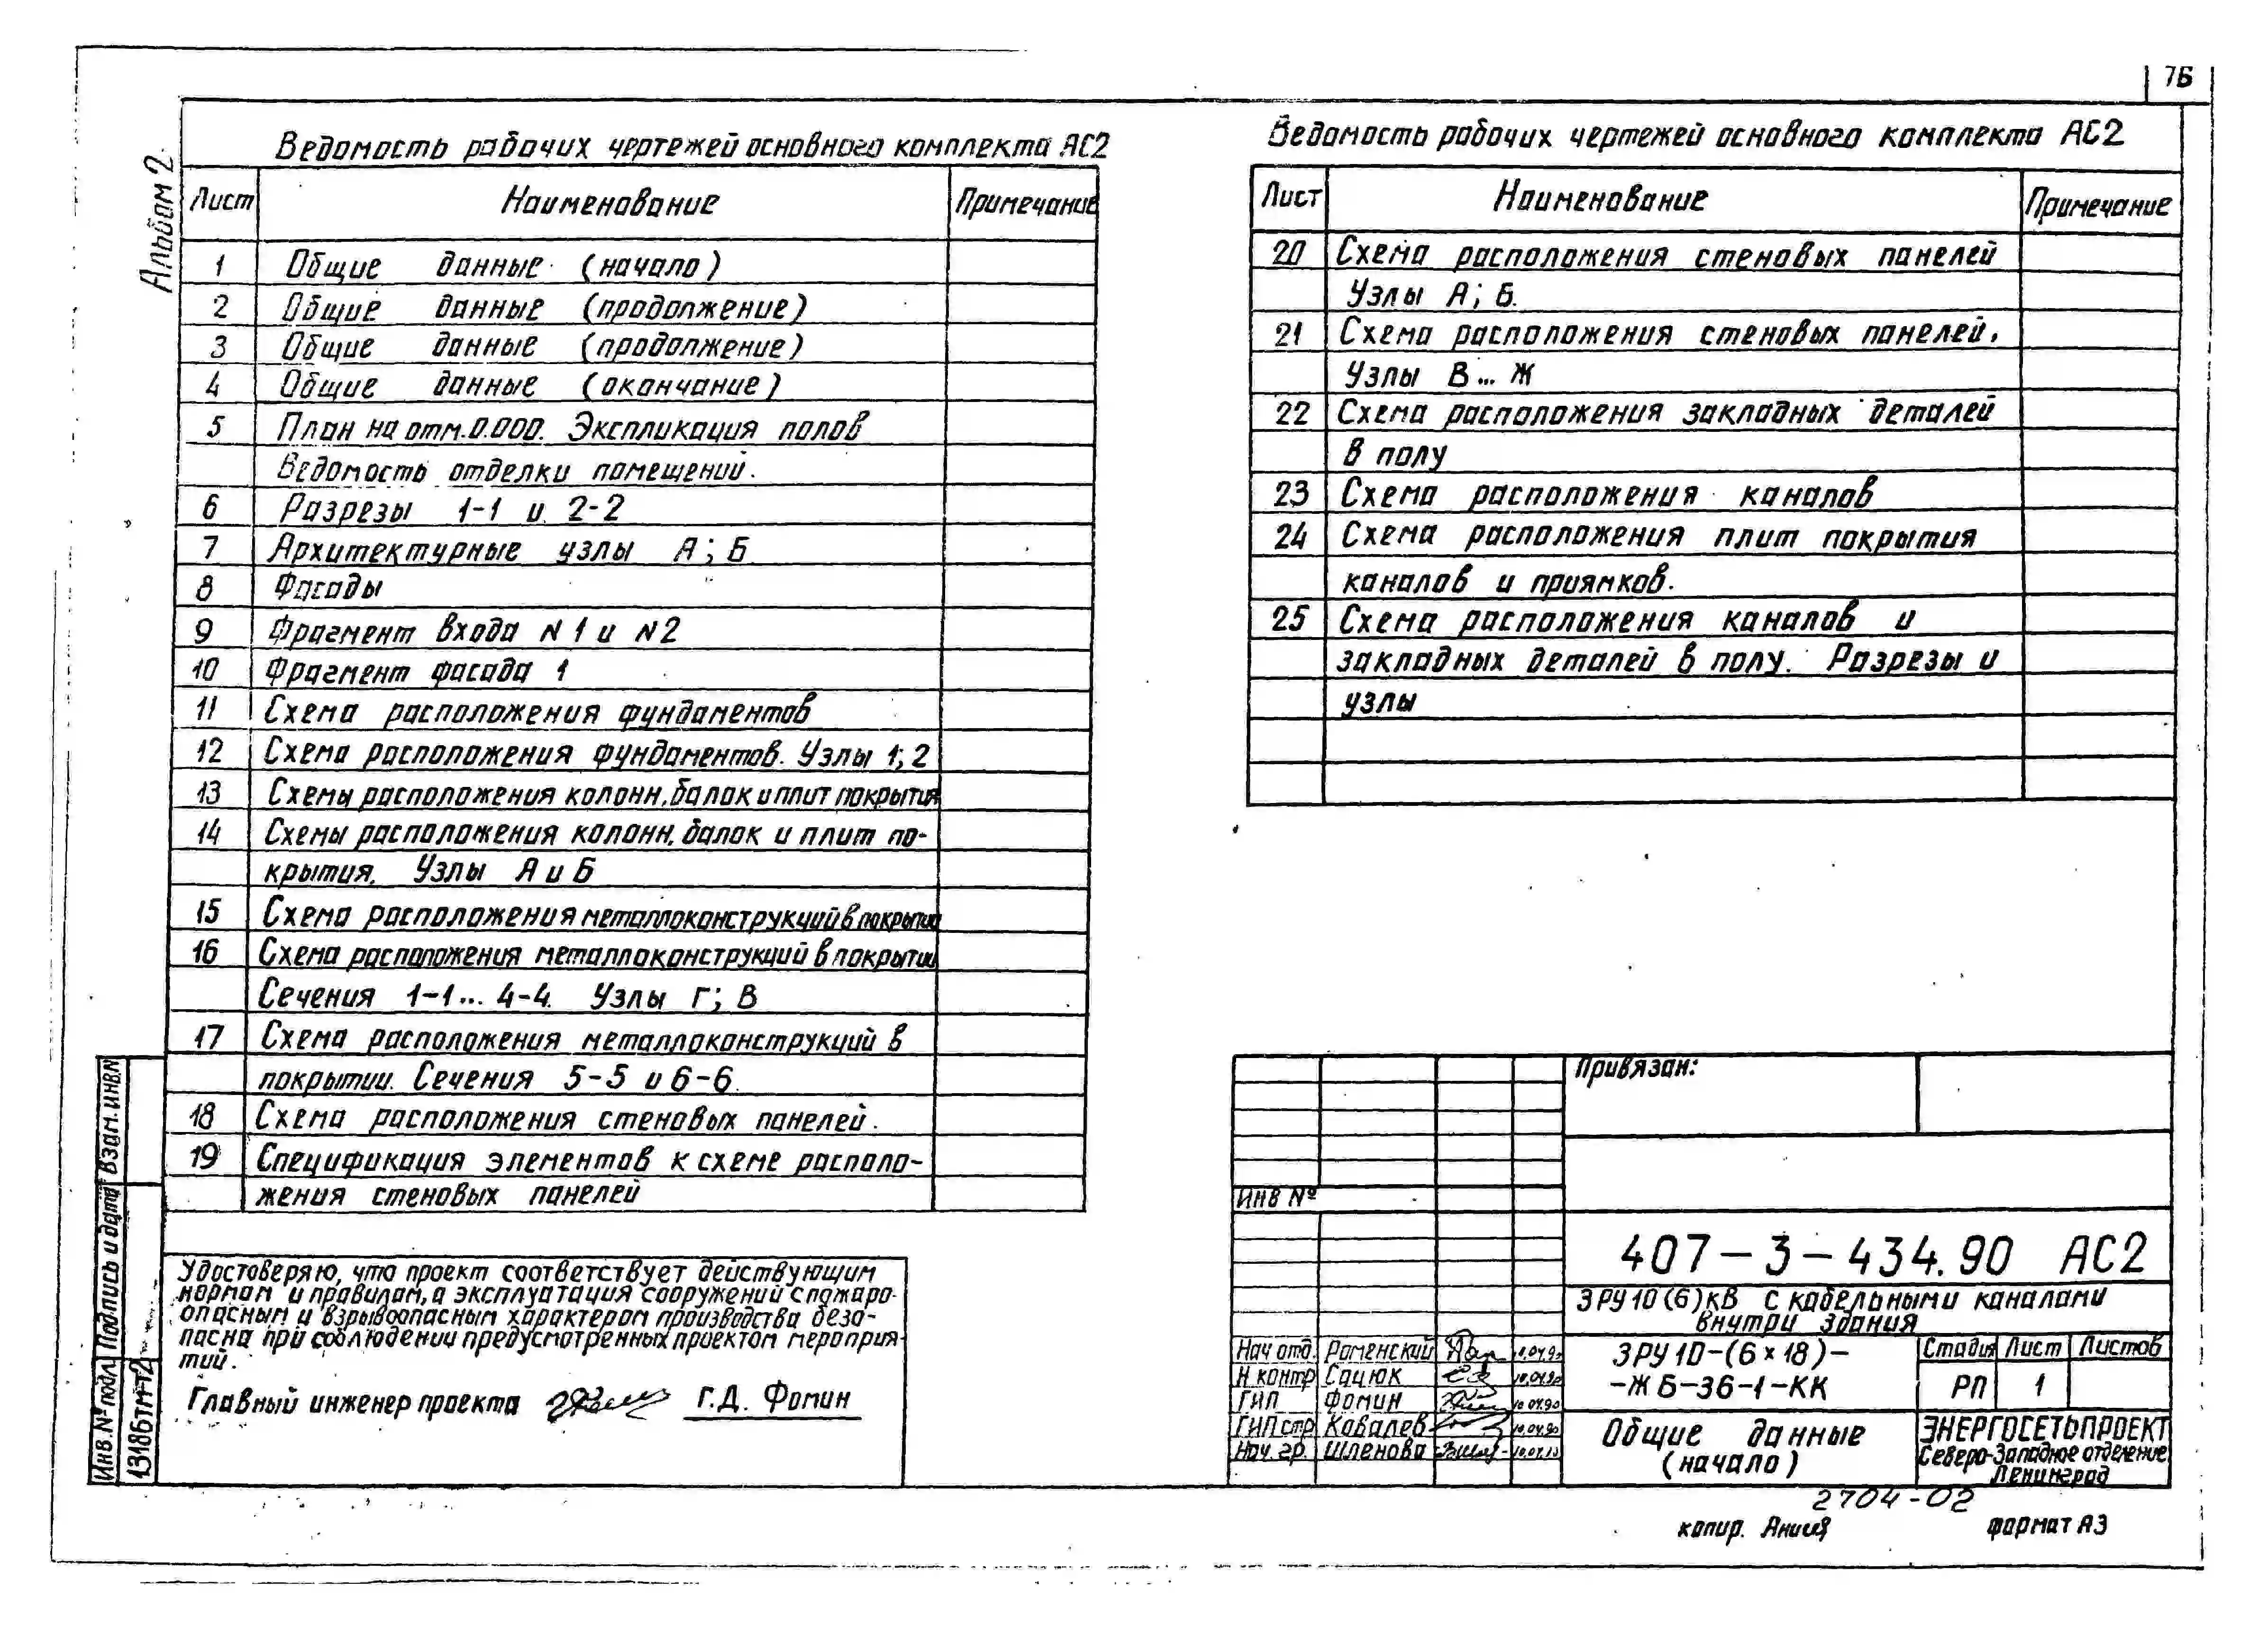 76
Альбом 2
Ведомость рабочих чертежей основного комплекта АС2
Лист Наименование Примечание
1 Общие данные (начало)
2 Общие данные (продолжение)
3 Общие данные (продолжение)
4 Общие данные (окончание)
5 План на отм.0.000. Экспликация полов
Ведомость отделки помещений.
6 Разрезы 1-1 и 2-2
7 Архитектурные узлы А; Б
8 Фасады
9 Фрагмент входа N1 и N2
10 Фрагмент фасада 1
11 Схема расположения фундаментов
12 Схема расположения фундаментов. Узлы 1; 2
13 Схемы расположения колонн, балок и плит покрытия
14 Схемы расположения колонн, балок и плит по-
крытия. Узлы А и Б
15 Схема расположения металлоконструкций в покрытии
16 Схема расположения металлоконструкций в покрытии
Сечения 1-1... 4-4. Узлы Г; В
17 Схема расположения металлоконструкций в
покрытии. Сечения 5-5 и 6-6.
18 Схема расположения стеновых панелей.
19 Спецификация элементов к схеме располо-
жения стеновых панелей
Ведомость рабочих чертежей основного комплекта АС2
Лист Наименование Примечание
20 Схема расположения стеновых панелей
Узлы А; Б.
21 Схема расположения стеновых панелей.
Узлы В... Ж
22 Схема расположения закладных деталей
в полу
23 Схема расположения каналов
24 Схема расположения плит покрытия
каналов и приямков.
25 Схема расположения каналов и
закладных деталей в полу. Разрезы и
узлы
Удостоверяю, что проект соответствует действующим
нормам и правилам, а эксплуатация сооружений с пожаро-
опасным и взрывоопасным характером производства безо-
пасна при соблюдении предусмотренных проектом мероприя-
тий.
Главный инженер проекта Г.Д. Фомин
Взам.инв.N
Подпись и дата
Инв.№ подл
13186тм-т2
Привязан:
ИНВ №
407-3-434.90 АС2
ЗРУ 10(6)кВ с кабельными каналами
внутри здания
Нач отд. Роменский
Н контр Сацюк
ГИП Фомин 10.04.90
ГИП стр Ковалев 10.04.90
Нач. гр. Шленова
ЗРУ 10-(6×18)-
-ЖБ-36-1-КК
Стадия Лист Листов
РП 1
Общие данные
(начало)
ЭНЕРГОСЕТЬПРОЕКТ
Северо-Западное отделение
Ленинград
2704-02
копир. формат А3